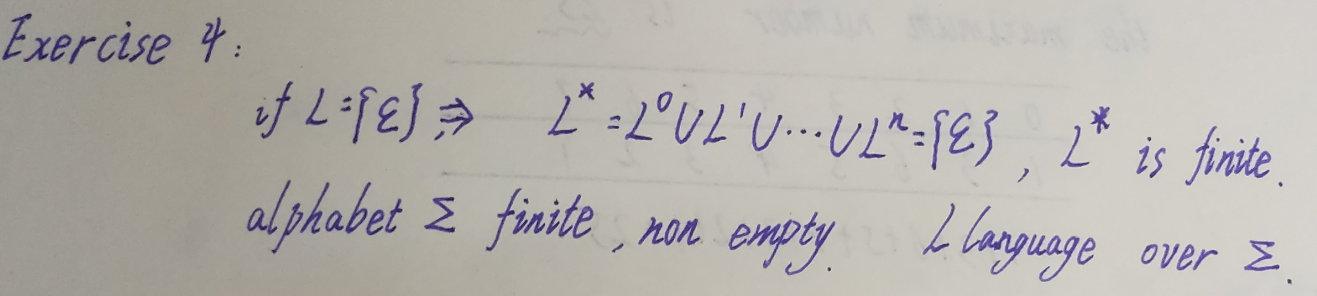 Exercise 4:
if L={ε} ⇒ L* = L⁰∪L¹∪⋯∪Lⁿ={ε}, L* is finite.
alphabet Σ finite, non empty. L language over Σ.